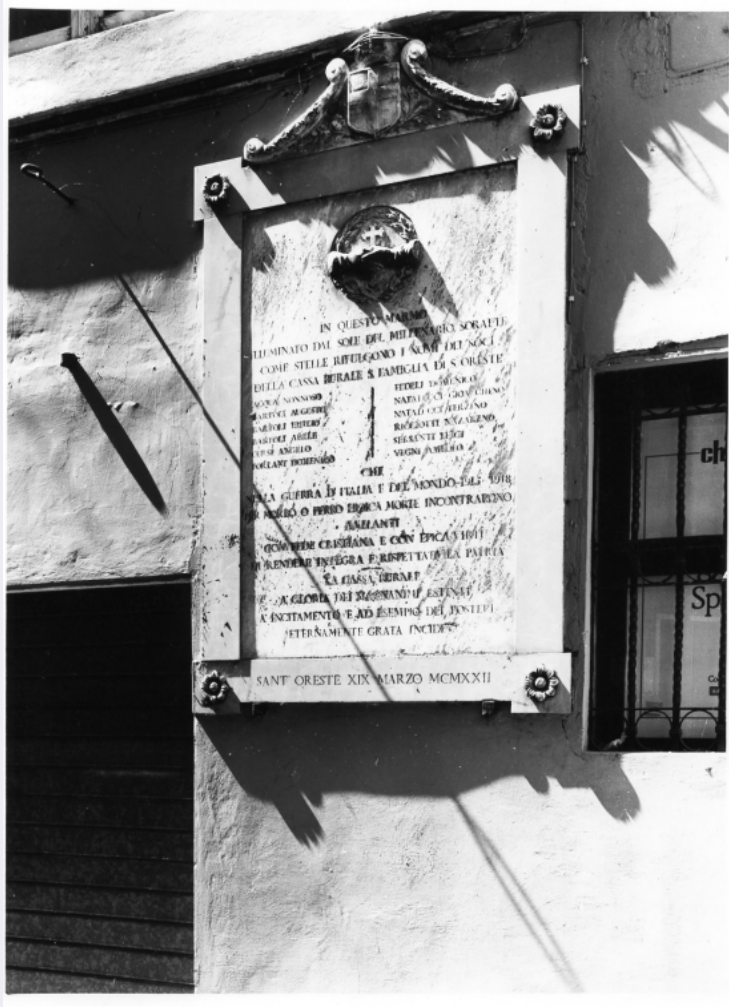 IN QUESTO MARMO
ILLUMINATO DAL SOLE DEL MILLENARIO SORATTE
COME STELLE RIFULGONO I NOMI DEI SOCI
DELLA CASSA RURALE S. FAMIGLIA DI S. ORESTE
ACQUA NONNOSO
BARTOLI AUGUSTO
BARTOLI
BARTOLI ABELE
ANGELO
DOMENICO
FEDELI DOMENICO
NATALUCCI GIOACHINO
NATALUCCI TERZINO
RICCIOTTI NAZARENO
SERSANTI LUIGI
VEGNI AMEDEO
CHE
NELLA GUERRA D'ITALIA E DEL MONDO 1915-1918
PER MORBO O FERRO EROICA MORTE INCONTRARONO
ANELANTI
CON FEDE CRISTIANA E CON EPICA VIRTÙ
DI RENDERE INTEGRA E RISPETTATA LA PATRIA
LA CASSA RURALE
A GLORIA DEI MAGNANIMI ESTINTI
A INCITAMENTO E AD ESEMPIO DEI POSTERI
ETERNAMENTE GRATA INCIDE
SANT'ORESTE XIX MARZO MCMXXII
ch
Sp